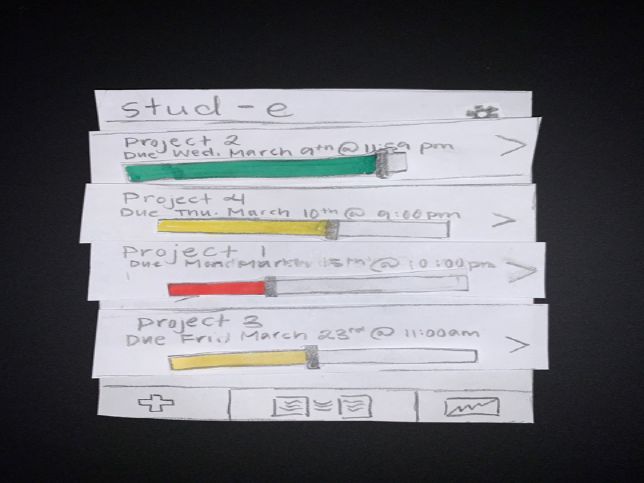 stud-e
Project 2
Due Wed. March 9th @ 11:59 pm
Project 4
Due Thu. March 10th @ 9:00pm
Project 1
Due Mon March 15th @ 10:00pm
Project 3
Due Fri. March 23rd @ 11:00am